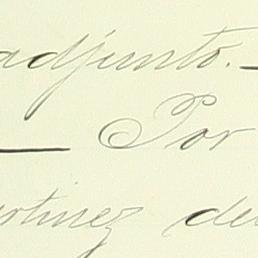 adjunto. —
— Por
rtinez de